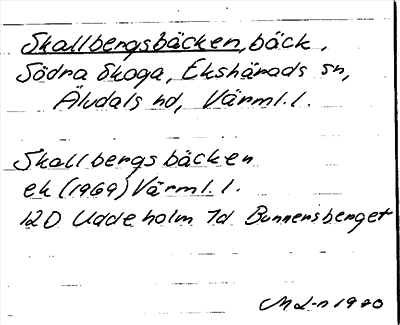 Skallbergsbäcken, bäck,
Södra Skoga, Ekshärads sn,
Älvdals hd, Värml. l.
Skallbergsbäcken
ek (1969) Värml. l.
12D Uddeholm 7d Bunnersberget
M L-n 1980